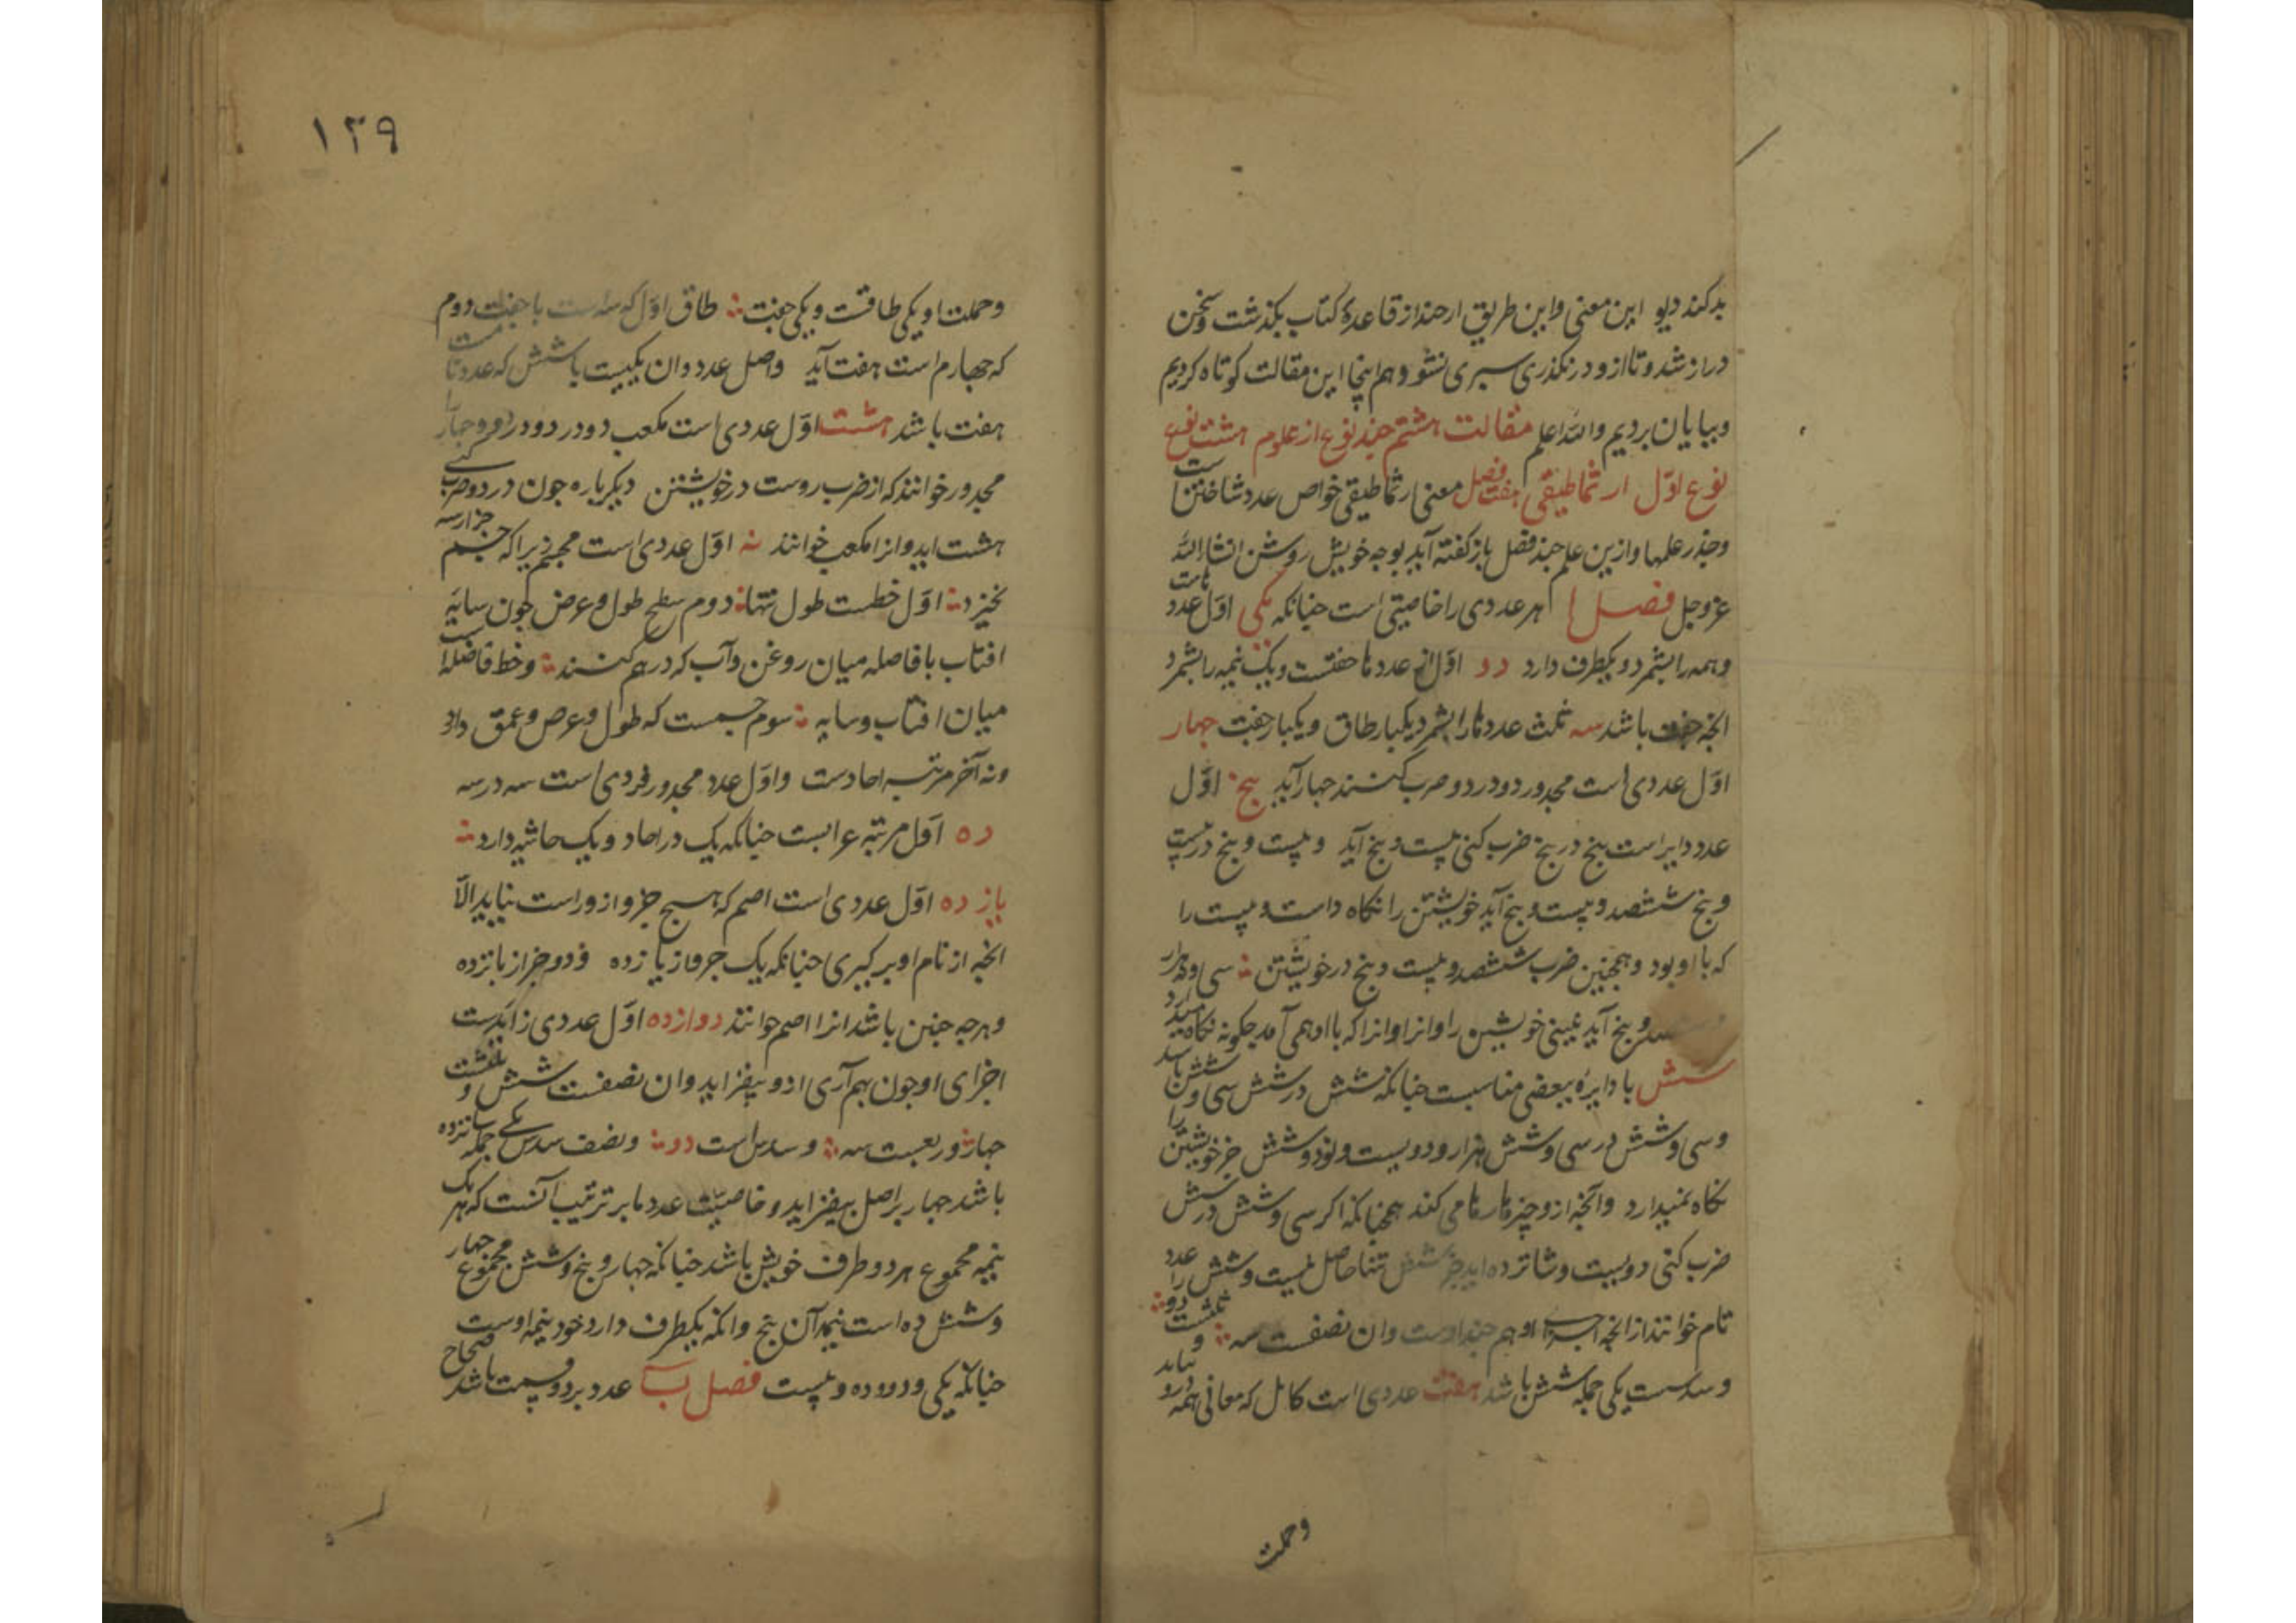 بدکند دیو این معنی و این طریق ارچند از قاعدهٔ کتاب بکذشت و سخن
دراز شد و تا ازو در نکذری سپری نشود هم اینجا این مقالت کوتاه کردیم
و بپایان بردیم والله اعلم مقالت هشتم چند نوع از علوم هشت نوع
نوع اوّل ارثماطیقی هفت فصل معنی ارثماطیقی خواص عدد شناختن است
و جذر علمها و ازین علم چند فصل باز کفته آید بوجه خویش روشن انشاالله
عزوجل فصل ا هر عددی را خاصیتی است چنانکه یکی اوّل عدد هاست
و همه را بشمرد و یکطرف دارد دو اوّل از عددها جفتست و یک نیمه را بشمرد
انچه جفت باشد سه ثلث عددها را بشمرد یکبار طاق و یکبار جفت چهار
اوّل عددی است مجدور دو در دو ضرب کنند چهار آید پنج اوّل
عدد دایر است پنج در پنج ضرب کنی بیست و پنج آید و بیست و پنج در بیست
و پنج ششصد و بیست و پنج آید خویشتن را نکاه داشت و بیست را
که با او بود و همچنین ضرب ششصد و بیست و پنج در خویشتن سی و نه هزار
و پنج آید نبینی خویشتن را و انرا و انرا که با او همی آمد چکونه نکاه میدارد
شش با دایرهٔ ببعضی مناسبت چنانکه شش در شش سی و شش باشد
و سی و شش در سی و شش هزار و دویست و نود و شش جز خویشتن را
نکاه نمیدارد و آنچه ازو چیزها رها می کند همچنانکه اکر سی و شش در شش
ضرب کنی دویست و شانزده اید جز شش تنها حاصل نیست و شش را عدد
تام خوانند از انچه اجزای او هم چند اوست و ان نصفست سه و ثلثست دو
و سدسست یکی جمله شش باشد هفت عددی است کامل که معانی همه درو بیاید
وجملت
۱۲۹
وجملت او یکی طاقست و یکی جفت طاق اوّل که سه است با جفت دوم
که چهارم است هفت آید و اصل عدد و ان یکیست با شش که عدد تامست
هفت باشد هشت اوّل عددی است مکعب دو در دو در دو و چهار را
مجدور خوانند که از ضرب روست در خویشتن دیکرباره چون در دو ضرب کنی
هشت اید و انرا مکعب خوانند نه اوّل عددی است مجسم زیرا که جسم جز از سه
نخیزد اوّل خطست طول تنها دوم سطح طول و عرض چون سایه
افتاب با فاصله میان روغن و آب که در هم کنند و خط فاضله است
میان افتاب و سایه سوم جسمست که طول و عرض و عمق دارد
و نه آخر مرتبه احادست و اوّل عدد مجدور فردی است سه در سه
ده اوّل مرتبه عشرا‌تست چنانکه یک در احاد و یک حاشیه دارد
یازده اوّل عددی است اصم که هیچ جزو از و راست نیاید الاّ
انچه از نام او برکیری چنانکه یک جزو از یازده و دو جزو از پانزده
و هرچه چنین باشد انرا اصم خوانند دوازده اوّل عددی زایدست
اجزای او چون بهم آری ازو بیفزاید و ان نصفست شش و ثلثست
چهار و ربعست سه و سدس است دو و نصف سدس یکی جمله شانزده
باشد چهار بر اصل بیفزاید و خاصیّت عددها بر ترتیب آنست که هر یک
نیمه مجموع هر دو طرف خویش باشد چنانکه چهار و پنج و شش مجموع چهار
و شش ده است نیمه آن پنج و انکه یکطرف دارد خود نیمه اوست
چنانکه یکی و دو و ده و بیست فصل ب عدد بر دو قسمت باشد صحاح